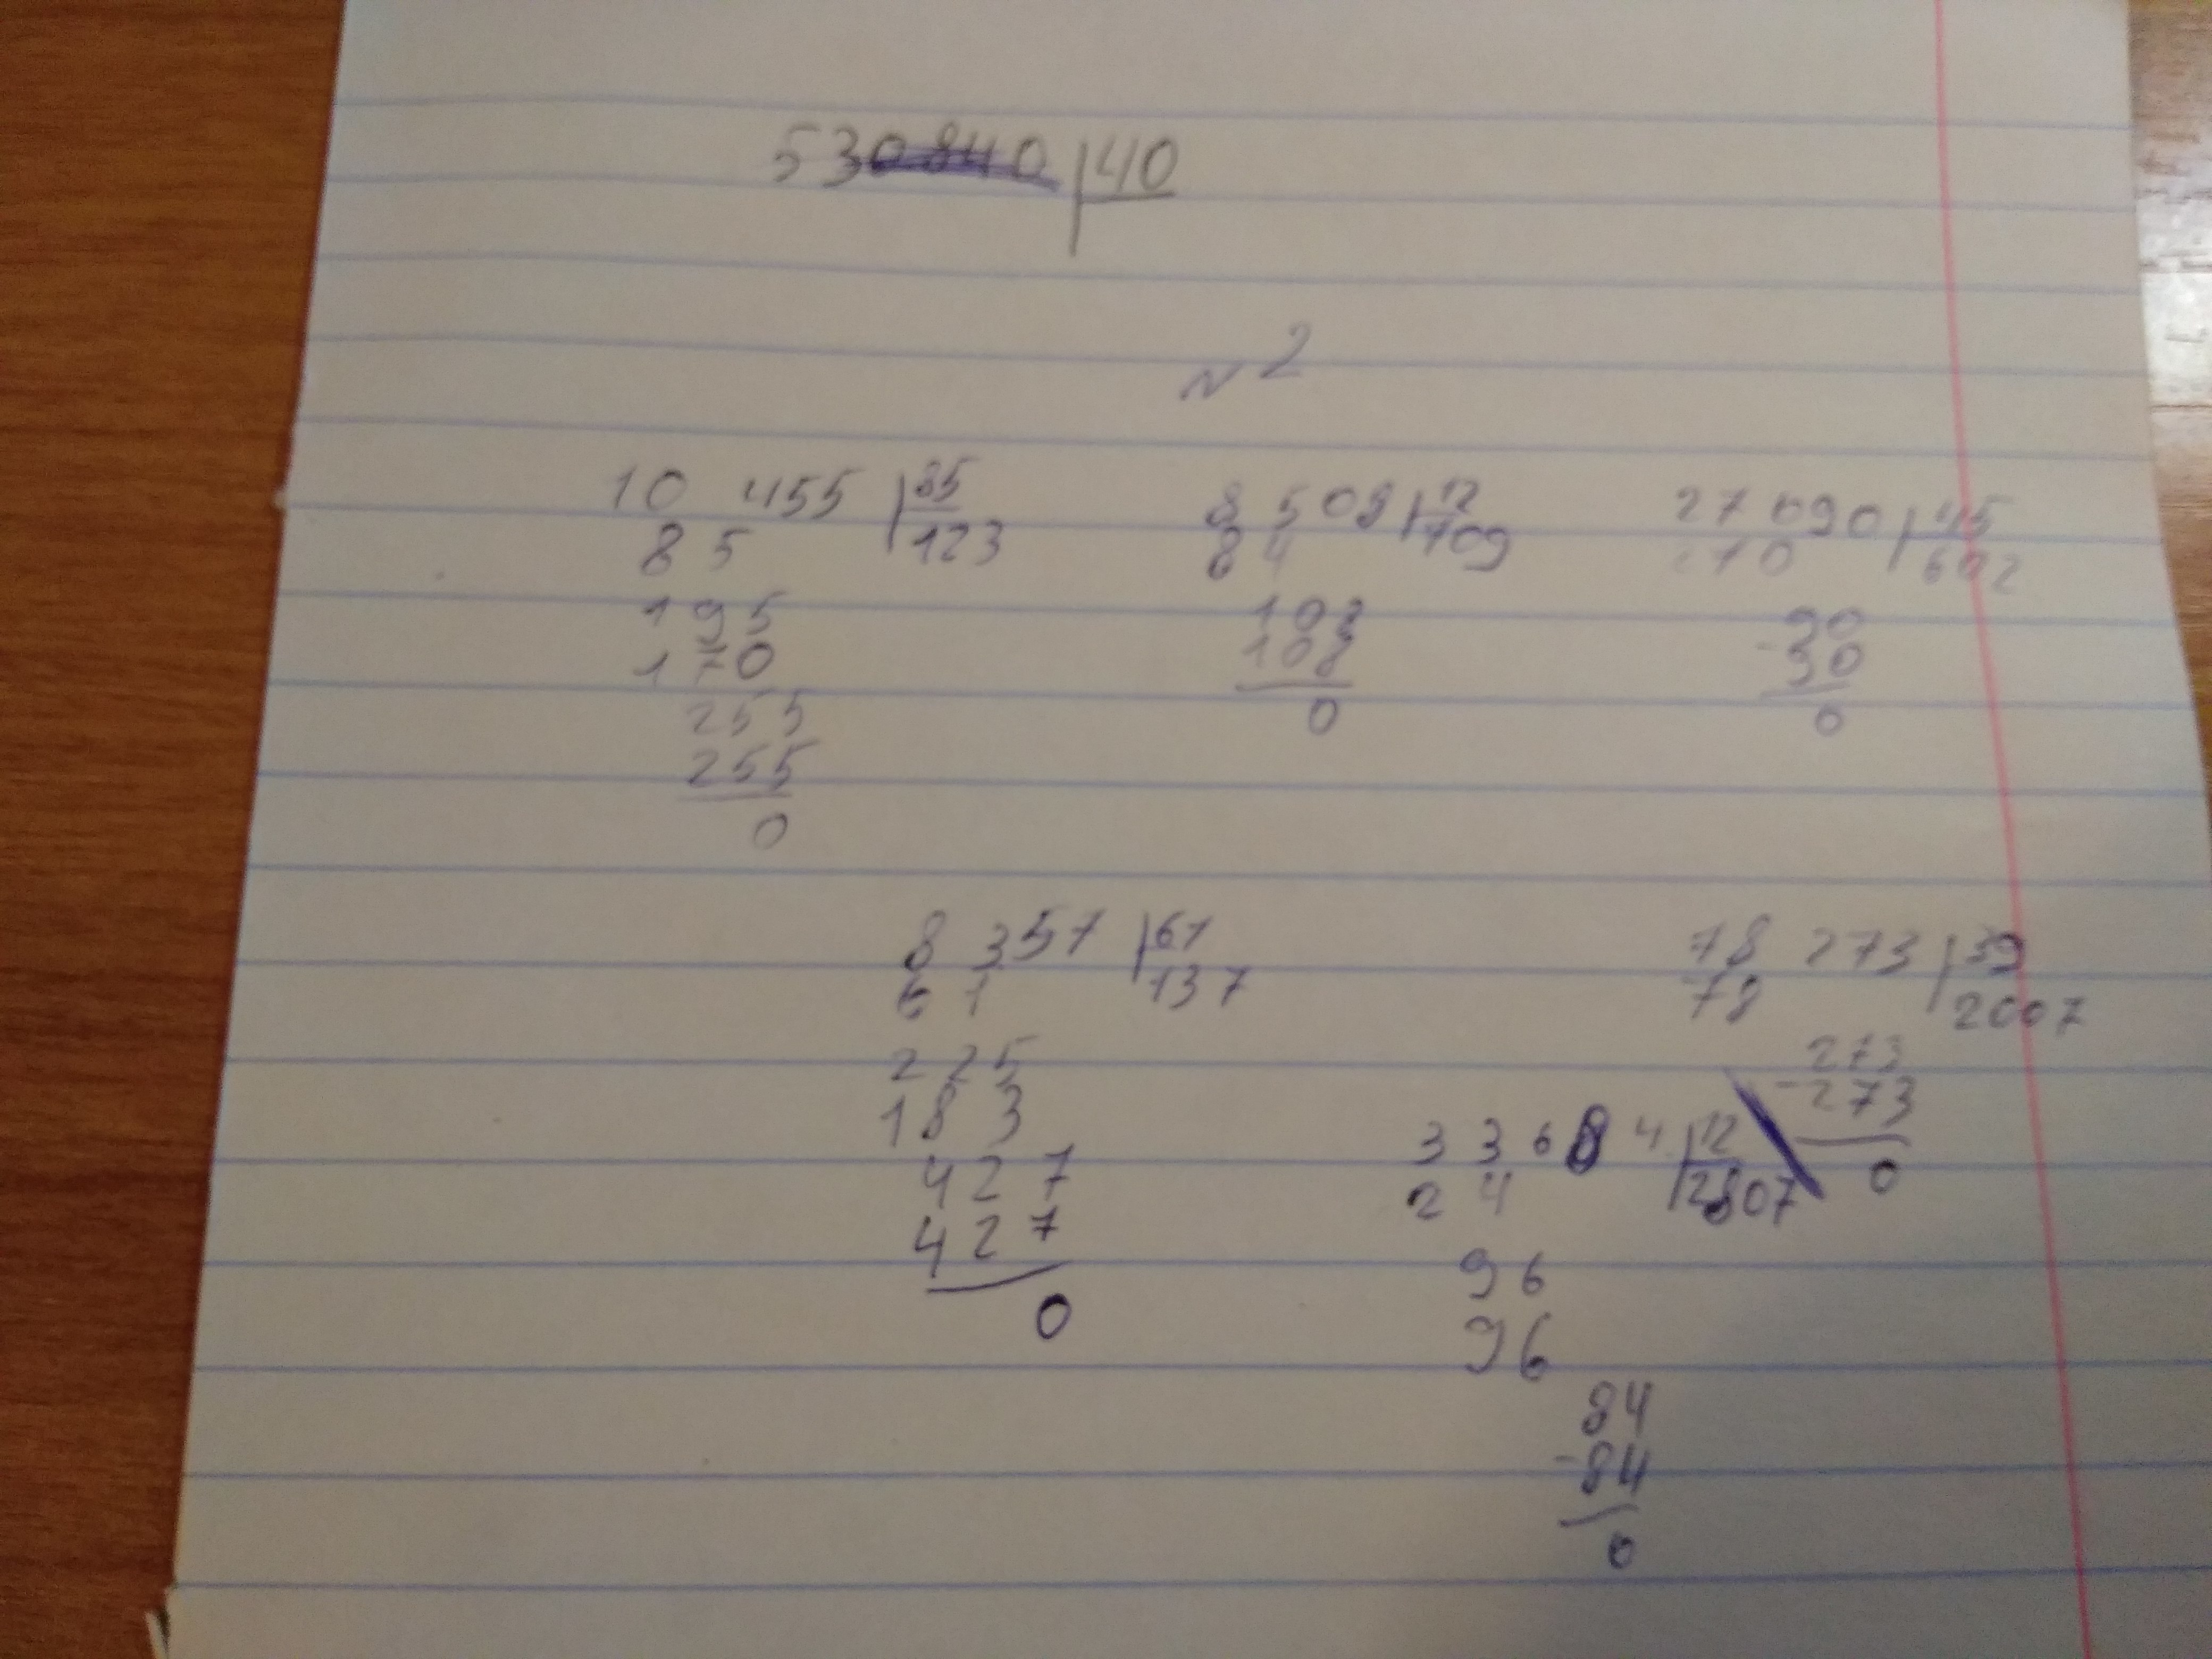 530840 | 40
N 2
10 455 | 85
85 | 123
195
170
255
255
0
8 508 | 12
84 | 709
108
108
0
27 090 | 45
270 | 602
90
-90
0
8 357 | 61
61 | 137
225
183
427
427
0
78 273 | 39
78 | 2007
273
-273
0
33684 | 12
24 | 2807
96
96
84
-84
0